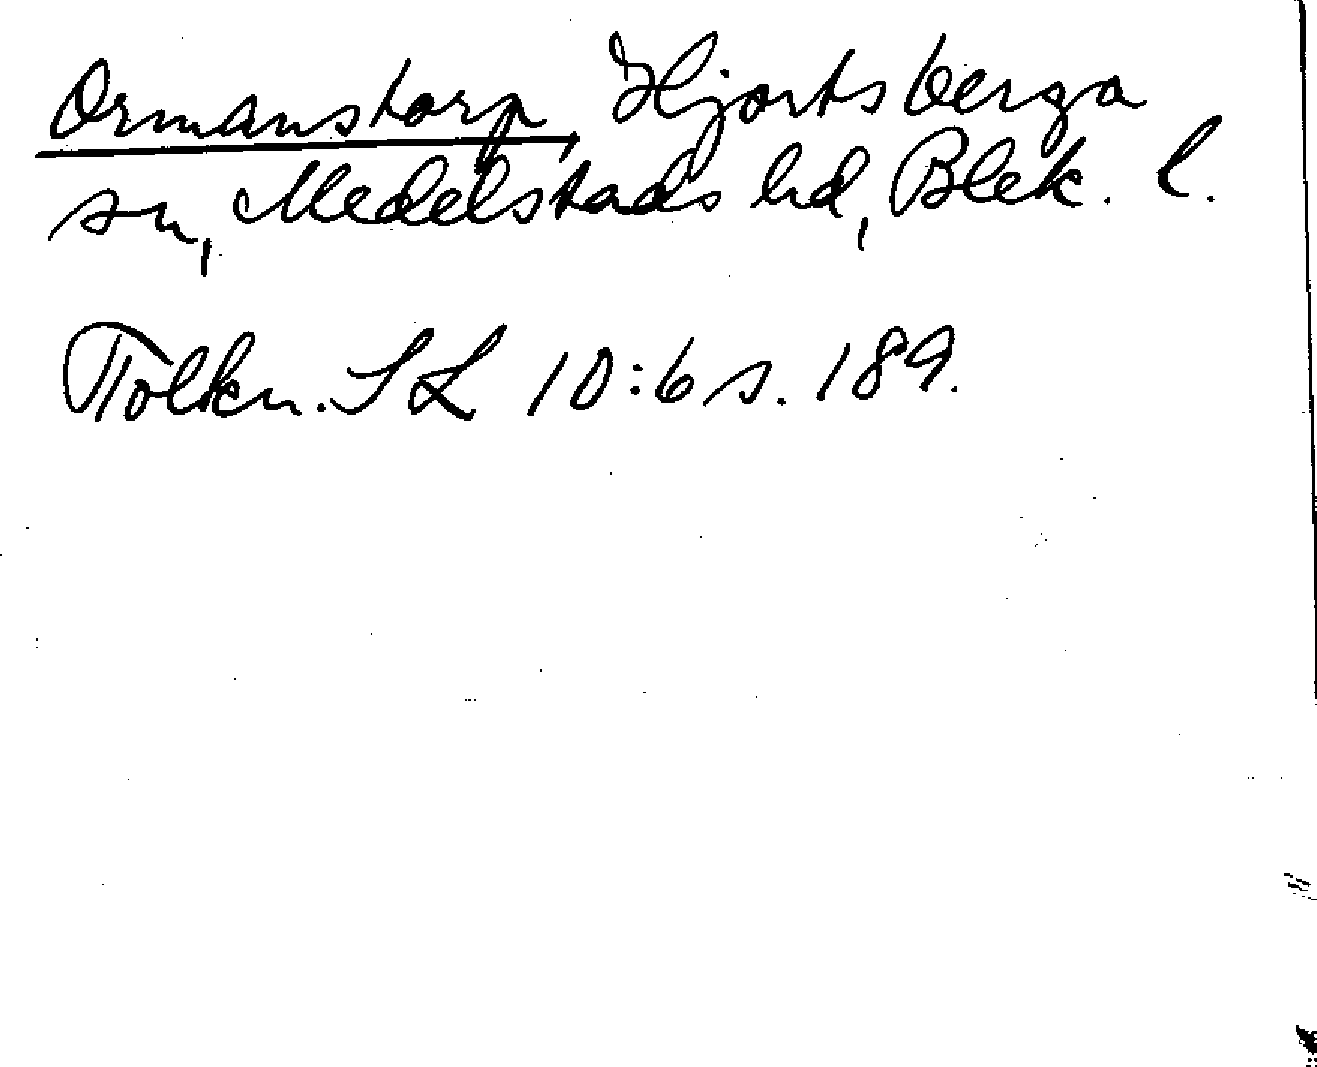 Ormanstorp, Hjortsberga
sn, Medelstads hd, Blek. l.
Tolkn. SL 10:6 s. 189.